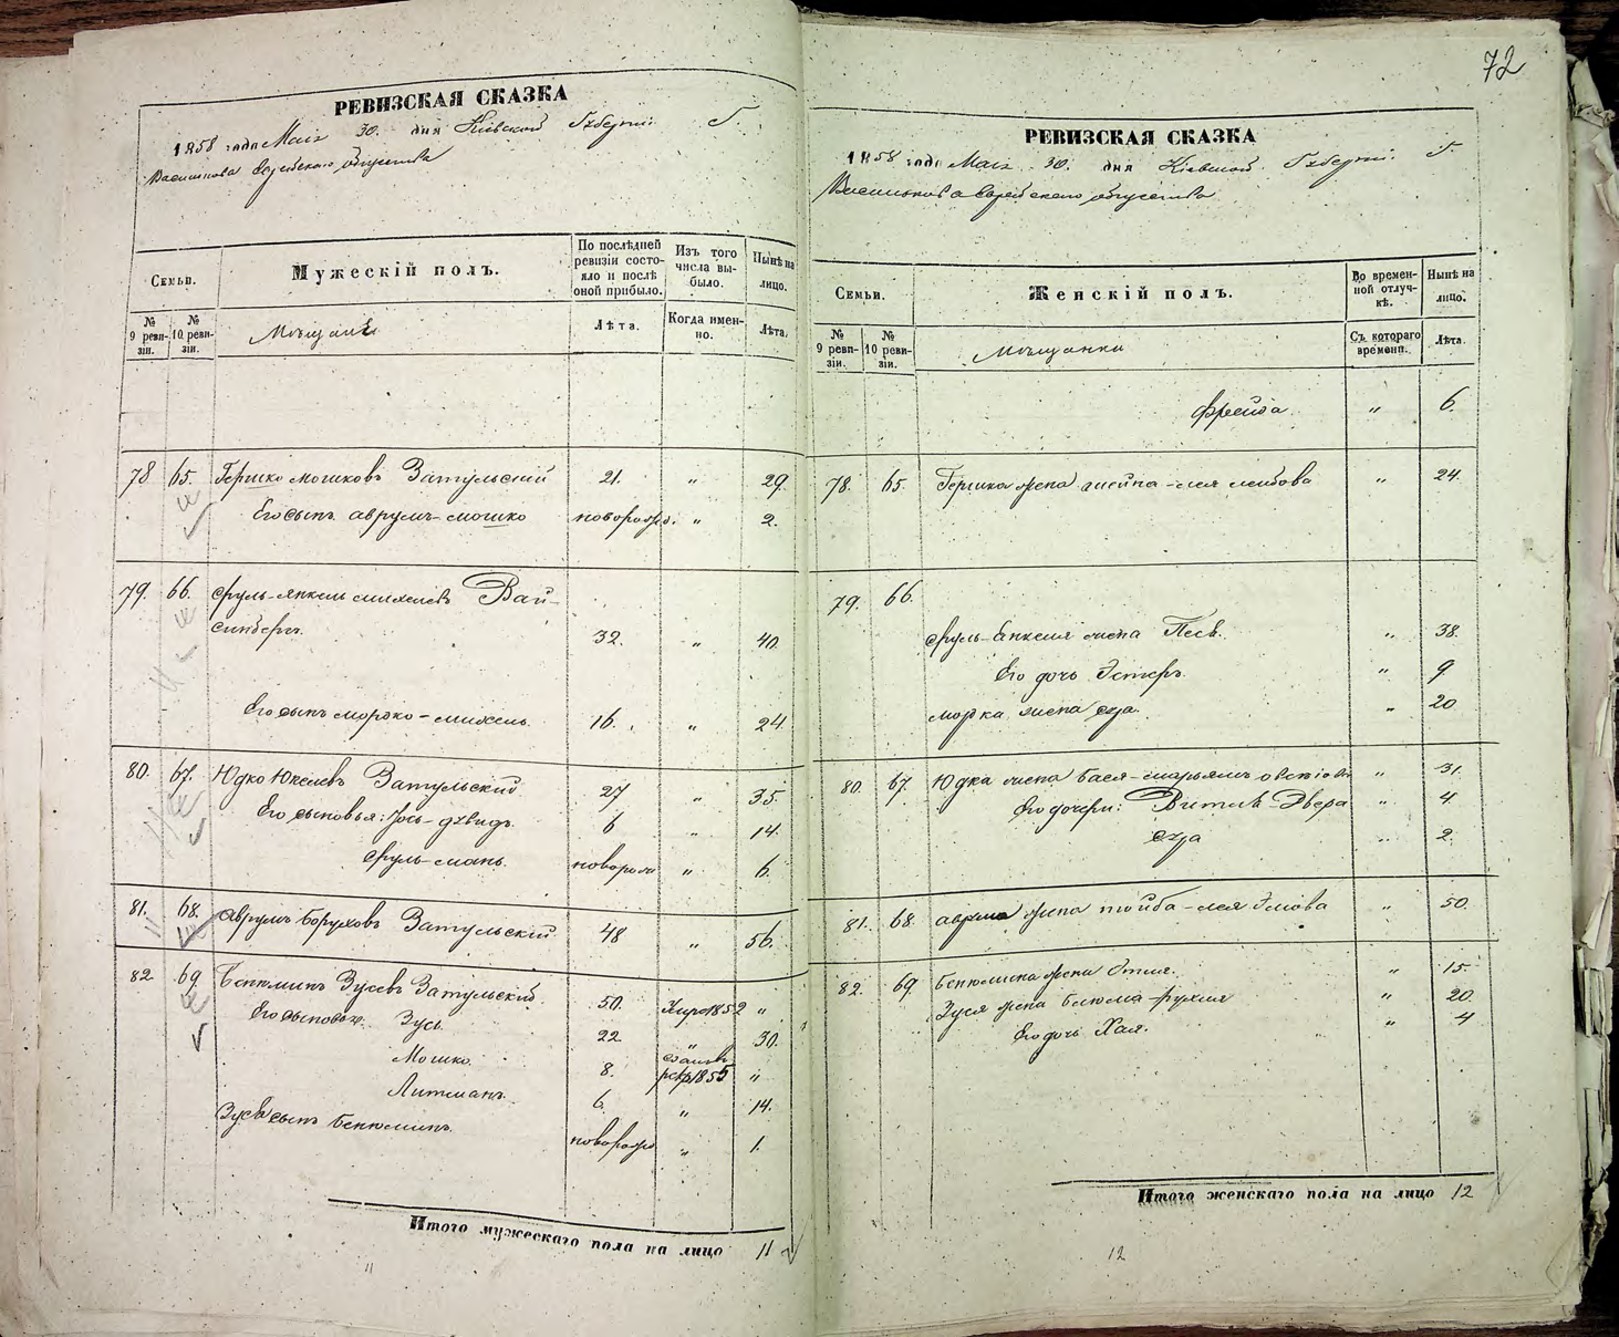 72
РЕВИЗСКАЯ СКАЗКА
1858 года Маія 30. дня Кіевской Губерніи. Г.
Василькова Еврейскаго общества
Семьи.
Мужескій полъ.
По послѣдней ревизіи состояло и послѣ оной прибыло.
Изъ того числа выбыло.
Нынѣ на лицо.
№ 9 ревизіи.
№ 10 ревизіи.
Мѣщане
Лѣта.
Когда именно.
Лѣта.
78 65. Гершко Мошковъ Затульскій 21. " 29.
Его сынъ Аврумъ-Мошко новорожд. " 2.
79. 66. Сруль-Янкель Михелевъ Вай-
32. " 40.
Его сынъ Мордко-Михель. 16. " 24.
80. 67. Юдко Юкелевъ Затульскій 27 " 35.
Его сыновья: Іось-Дувидъ. 6 " 14.
Сруль- новорож " 6.
81. 68. Аврумъ Боруховъ Затульскій 48 " 56.
82 69. Бенюминъ Зусевъ Затульскій. 50. Умре 1852 "
Его сыновья: Зусь 22 " 30.
Мошко. 8. рекр 1855 "
Литманъ. 6. " 14.
Зуся сынъ Бенюминъ. новорож " 1.
Итого мужескаго пола на лицо 11
11
РЕВИЗСКАЯ СКАЗКА
1858 года Маія 30. дня Кіевской Губерніи. Г.
Василькова Еврейскаго общества
Семьи.
Женскій полъ.
Во временной отлучкѣ.
Нынѣ на лицо.
№ 9 ревизіи.
№ 10 ревизіи.
Мѣщанки
Съ котораго времени.
Лѣта.
Фрейда " 6.
78. 65. Гершка жена -Лея Лейбова " 24.
79. 66.
Сруль-Янкеля жена Песя. " 38.
Его дочь Эстеръ. " 9
Мордка жена Сура. " 20
80. 67. Юдка жена Бася-Марьямъ " 31.
Его дочери: Двера " 4
Сура " 2.
81. 68. Аврума жена Тойба-Лея " 50.
82. 69. Бенюмина жена " 15.
Зуся жена -Рухля " 20.
Его дочь Хая. " 4
Итого женскаго пола на лицо 12
12